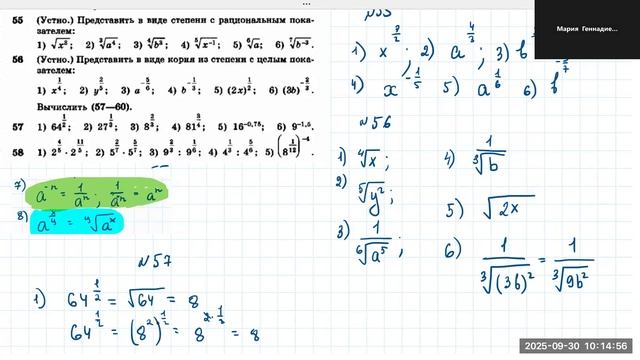 55 (Устно.) Представить в виде степени с рациональным показателем:
1) √x³; 2) ³√a⁴; 3) ⁴√b³; 4) ⁵√x⁻¹; 5) ⁶√a; 6) ⁷√b⁻³.
56 (Устно.) Представить в виде корня из степени с целым показателем:
1) x^(1/4); 2) y^(2/5); 3) a^(-5/6); 4) b^(-1/3); 5) (2x)^(1/2); 6) (3b)^(-2/3).
Вычислить (57—60).
57 1) 64^(1/2); 2) 27^(1/3); 3) 8^(2/3); 4) 81^(3/4); 5) 16^(-0,75); 6) 9^(-1,5).
58 1) 2^(4/5) · 2^(11/5); 2) 5^(2/7) · 5^(5/7); 3) 9^(2/3) : 9^(1/6); 4) 4^(1/3) : 4^(5/6); 5) (8^(1/12))^(-4).
7) a⁻ⁿ = 1/aⁿ; 1/aⁿ = aⁿ
8) a^(x/y) = ʸ√aˣ
№57
1) 64^(1/2) = √64 = 8
64^(1/2) = (8²)^(1/2) = 8^(2·1/2) = 8
№55
1) x^(3/2); 2) a^(4/3); 3) b
4) x^(-1/5) 5) a^(1/6) 6) b
№56
1) ⁴√x;
2) ⁵√y²;
3) 1/⁶√a⁵;
4) 1/³√b
5) √2x
6) 1/³√(3b)² = 1/³√9b²
Мария Геннадие...
2025-09-30 10:14:56